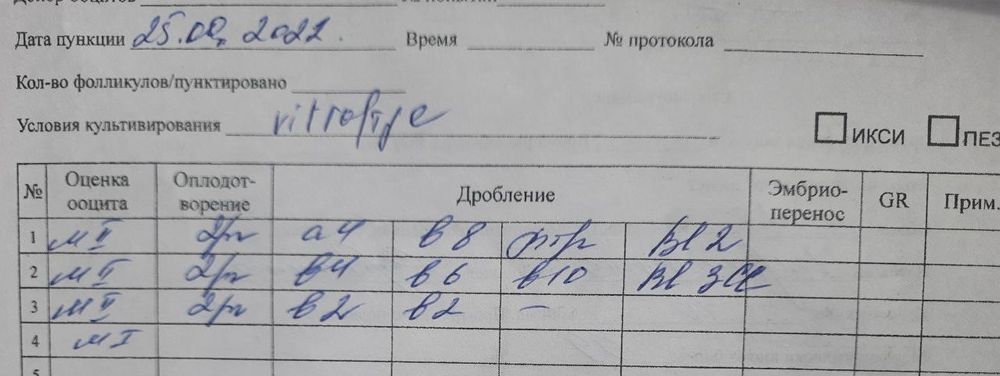 Дата пункции 25.08. 2022. Время № протокола
Кол-во фолликулов/пунктировано
Условия культивирования
ИКСИ ПЕЗ
№ Оценка ооцита Оплодот-ворение Дробление Эмбрио-перенос GR Прим.
1 м II 2pn а4 в8 Bl 2
2 м II 2pn в4 в6 в10 Bl 3СС
3 м II 2pn в2 в2 –
4 м I
5